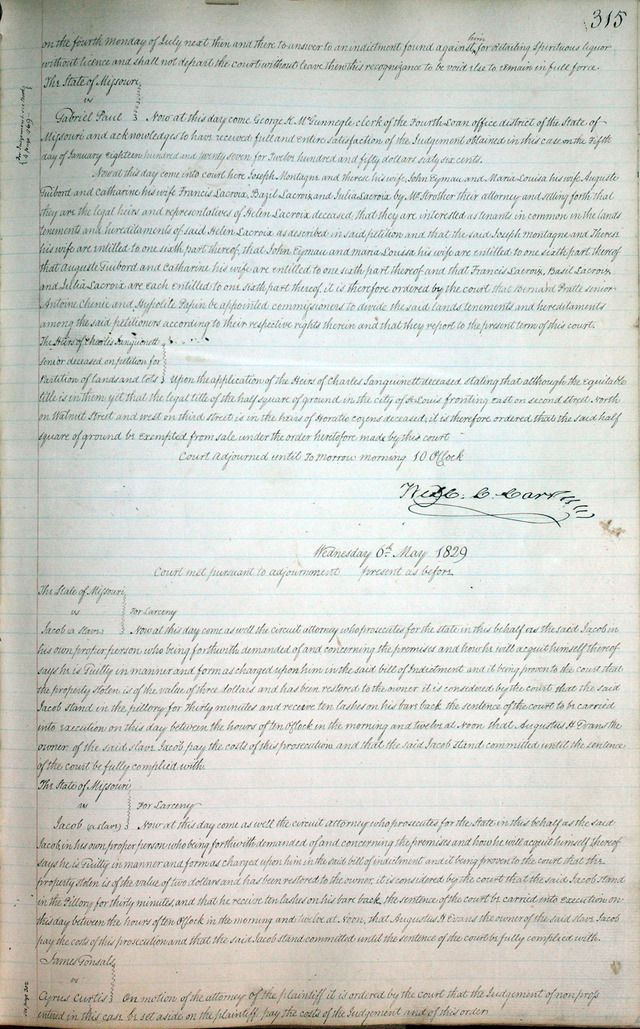 315
on the fourth Monday of July next then and there to answer to an indictment found against him for retailing Spirituous liquor
without licence and shall not depart the court without leave then this recognizance to be void else to remain in full force.
The State of Missouri
vs
Gabriel Paul Now at this day come George K. McGunnegle clerk of the Fourth Loan office district of the State of
Missouri and acknowledges to have received full and entire satisfaction of the Judgement obtained in this case on the Fifth
day of January Eighteen hundred and twenty seven for Twelve hundred and fifty dollars sixty six cents.
Now at this day come into court here Joseph Montagne and Therese his wife, John Eyman and Maria Louisa his wife Auguste
Guibord and Catharine his wife Francis Lacroix, Bazil Lacroix and Julia Lacroix by Mr Strother their attorney and setting forth that
they are the legal heirs and representatives of Helen Lacroix deceased, that they are interested as tenants in common in the lands
tenements and hereditaments of said Helen Lacroix as described in said petition and that the said Joseph Montagne and Therese
his wife are entitled to one sixth part thereof, that John Eyman and Maria Louisa his wife are entitled to one sixth part thereof
that Auguste Guibord and Catharine his wife are entitled to one sixth part thereof and that Francis Lacroix, Basil Lacroix
and Julia Lacroix are each entitled to one sixth part thereof, it is therefore ordered by the court that Bernard Pratte senior
Antoine Chenie and Hypolite Papin be appointed commissioners to divide the said lands tenements and hereditaments
among the said petitioners according to their respective rights therein and that they report to the present term of this court.
The Heirs of Charles Sanguinett
senior deceased on petition for
Partition of lands and lots Upon the application of the Heirs of Charles Sanguinett deceased stating that although the Equitable
title is in them yet that the legal title of the half square of ground in the city of St Louis fronting East on second street North
on Walnut Street and west on third street is in the heirs of Horatio Cozens deceased, it is therefore ordered that the said half
square of ground be exempted from sale under the order heretofore made by this court
Court Adjourned until To morrow morning 10 OClock
Wednesday 6th May 1829
Court met pursuant to adjournment present as before
The State of Missouri
vs For Larceny
Jacob (a slave) Now at this day come as well the circuit attorney who prosecutes for the state in this behalf as the said Jacob in
his own proper person who being forthwith demanded of and concerning the premises and how he will acquit himself thereof
says he is Guilty in manner and form as charged upon him in the said bill of Indictment and it being proven to the court that
the property stolen is of the value of three dollars and has been restored to the owner it is considered by the court that the said
Jacob stand in the pillory for thirty minutes and receive ten lashes on his bare back the sentence of the court to be carried
into execution on this day between the hours of ten OClock in the morning and twelve at Noon that Augustus H Evans the
owner of the said slave Jacob pay the costs of this prosecution and that the said Jacob stand committed until the sentence
of the court be fully complied with
The State of Missouri
vs For Larceny
Jacob (a slave) Now at this day come as well the circuit attorney who prosecutes for the State in this behalf as the said
Jacob in his own proper person who being forthwith demanded of and concerning the premises and how he will acquit himself thereof
says he is Guilty in manner and form as charged upon him in the said bill of indictment and it being proven to the court that the
property stolen is of the value of two dollars and has been restored to the owner, it is considered by the court that the said Jacob stand
in the Pillory for thirty minutes and that he receive ten lashes on his bare back, the sentence of the court be carried into execution on
this day between the hours of ten OClock in the morning and twelve at Noon, that Augustus H Evans the owner of the said slave Jacob
pay the costs of this prosecution and that the said Jacob stand committed until the sentence of the court be fully complied with.
James
vs
Cyrus Curtis On motion of the attorney of the plaintiff it is ordered by the court that the Judgement of non pross
entered in this case be set aside on the plaintiff pay the costs of the Judgement and of this order